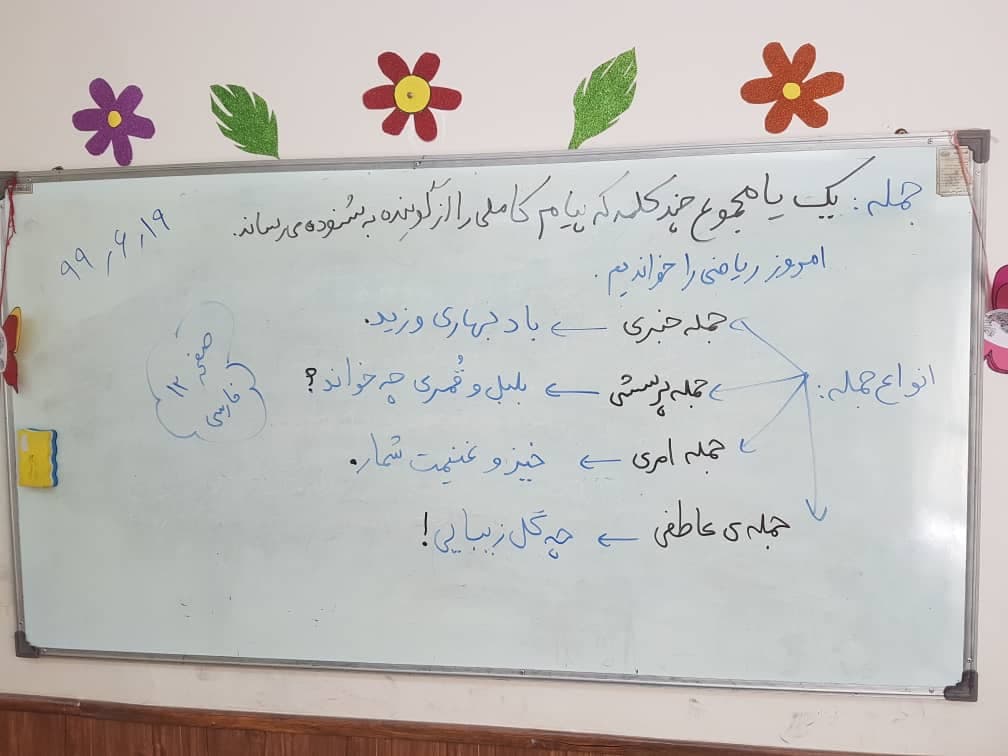 جمله: یک یا مجموع چند کلمه که پیام کاملی را از گوینده به شنونده می‌رساند.
۹۹٫۶٫۱۹
امروز ریاضی را خواندیم.
انواع جمله:
جمله خبری ← باد بهاری وزید.
جمله پرسشی ← بلبل و قُمری چه خواند؟
جمله امری ← خیز و غنیمت شمار.
جمله ی عاطفی ← چه گل زیبایی!
صفحه ۱۲
فارسی